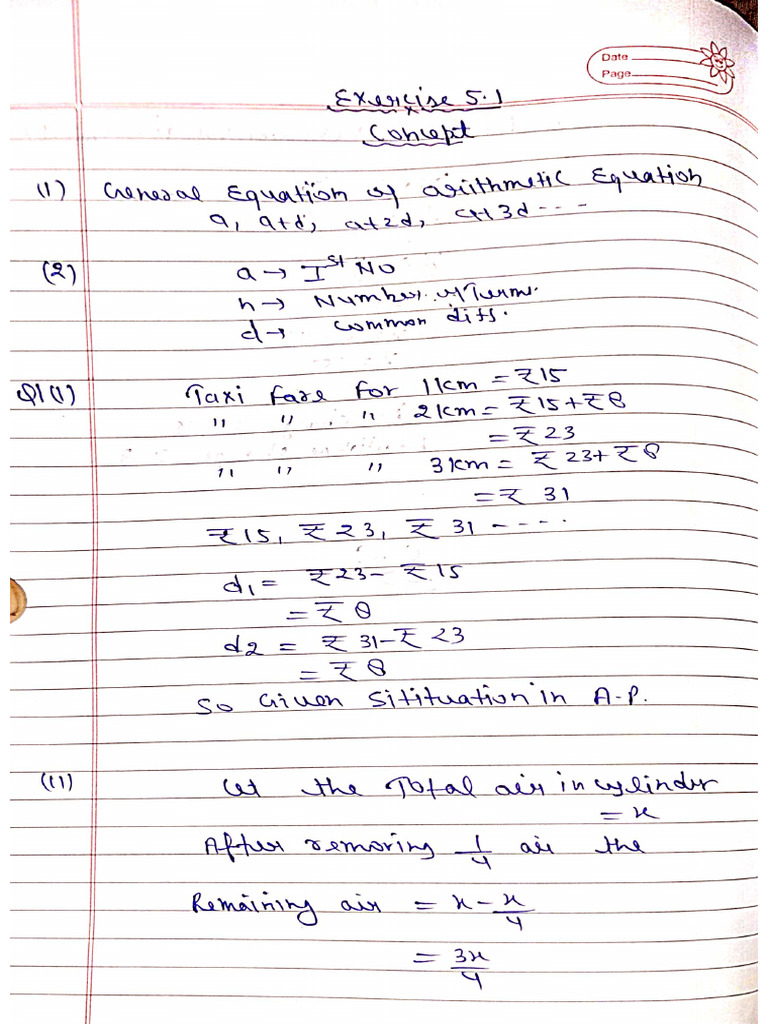 Date
Page
Exercise 5.1
Concept
(1) General Equation of arithmetic Equation
a, a+d, a+2d, a+3d ---
(2) a → Ist No
n → Number of Terms.
d → common diff.
Q1(1) Taxi fare for 1km = ₹15
" " " 2km = ₹15+₹8
= ₹23
" " " 3km = ₹23+₹8
= ₹31
₹15, ₹23, ₹31 ----
d1 = ₹23-₹15
= ₹8
d2 = ₹31-₹23
= ₹8
So Given Sitituation in A.P.
(11) Let the Total air in cylinder
= x
After removing 1/4 air the
Remaining air = x - x/4
= 3x/4